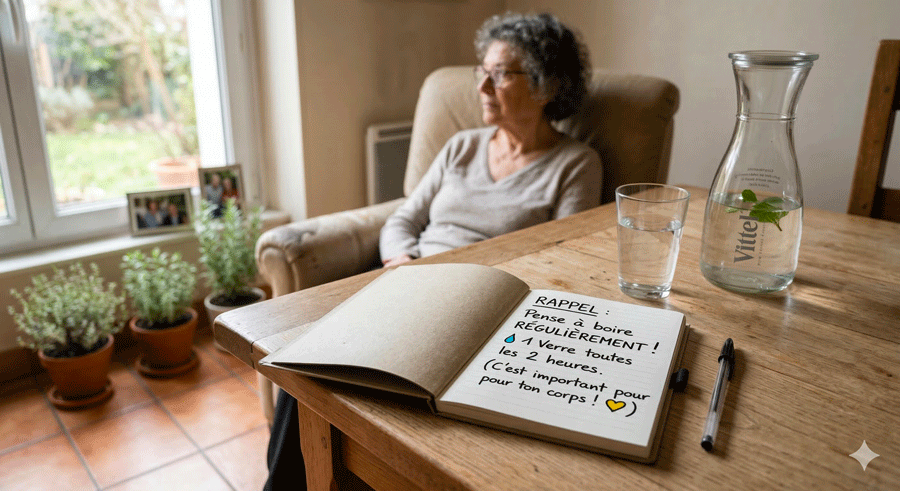 RAPPEL :
Pense à boire
RÉGULIÈREMENT !
💧 1 Verre toutes
les 2 heures.
(C'est important pour
pour ton corps ! 💛)
Vittel